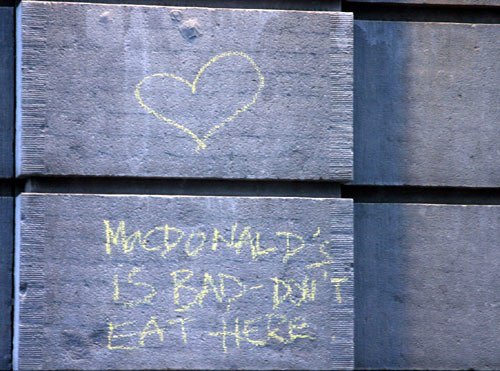 MACDONALD'S
IS BAD-DON'T
EAT HERE.